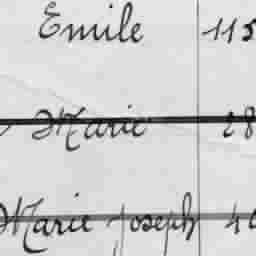 Emile 115
Marie 28
Marie Joseph 40